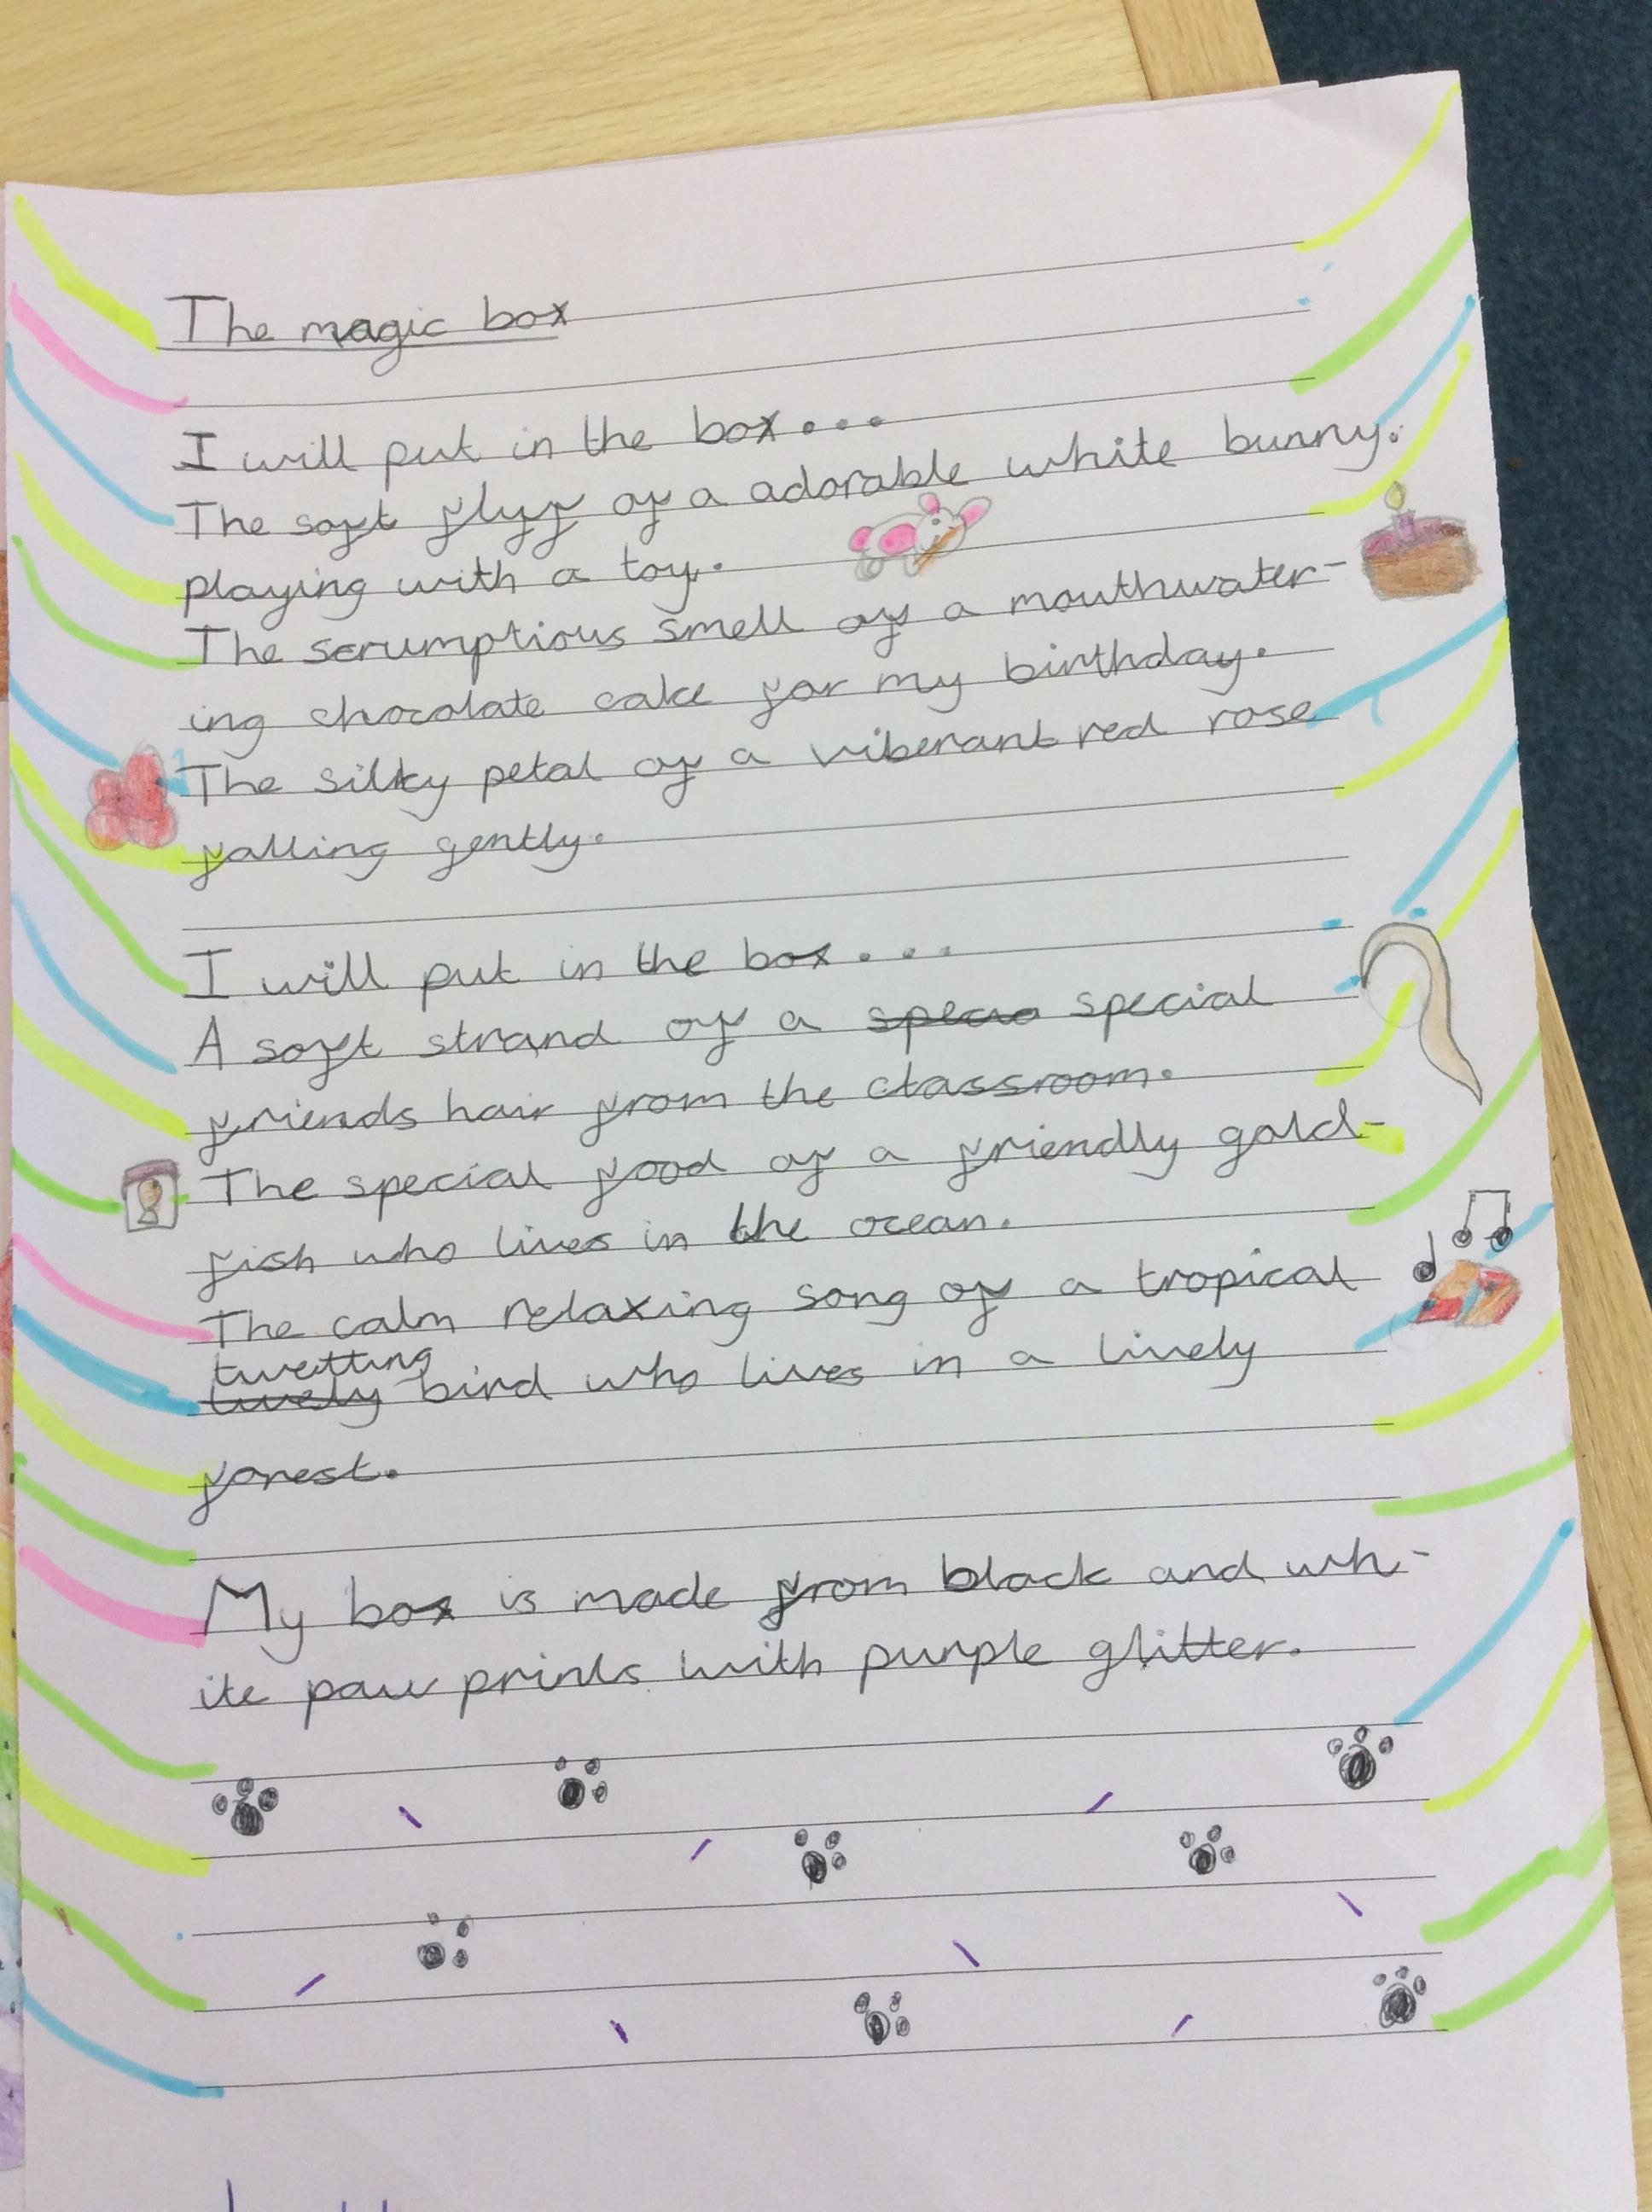 The magic box
I will put in the box...
The soft flyf of a adorable white bunny.
playing with a toy.
The scrumptious smell of a mouthwater-
ing chocolate cake for my birthday.
The silky petal of a viberant red rose
falling gently.
I will put in the box...
A soft strand of a special
friends hair from the classroom.
The special food of a friendly gold-
fish who lives in the ocean.
The calm relaxing song of a tropical
twetting
lively bird who lives in a lively
forest.
My box is made from black and wh-
ite paw prints with purple glitter.